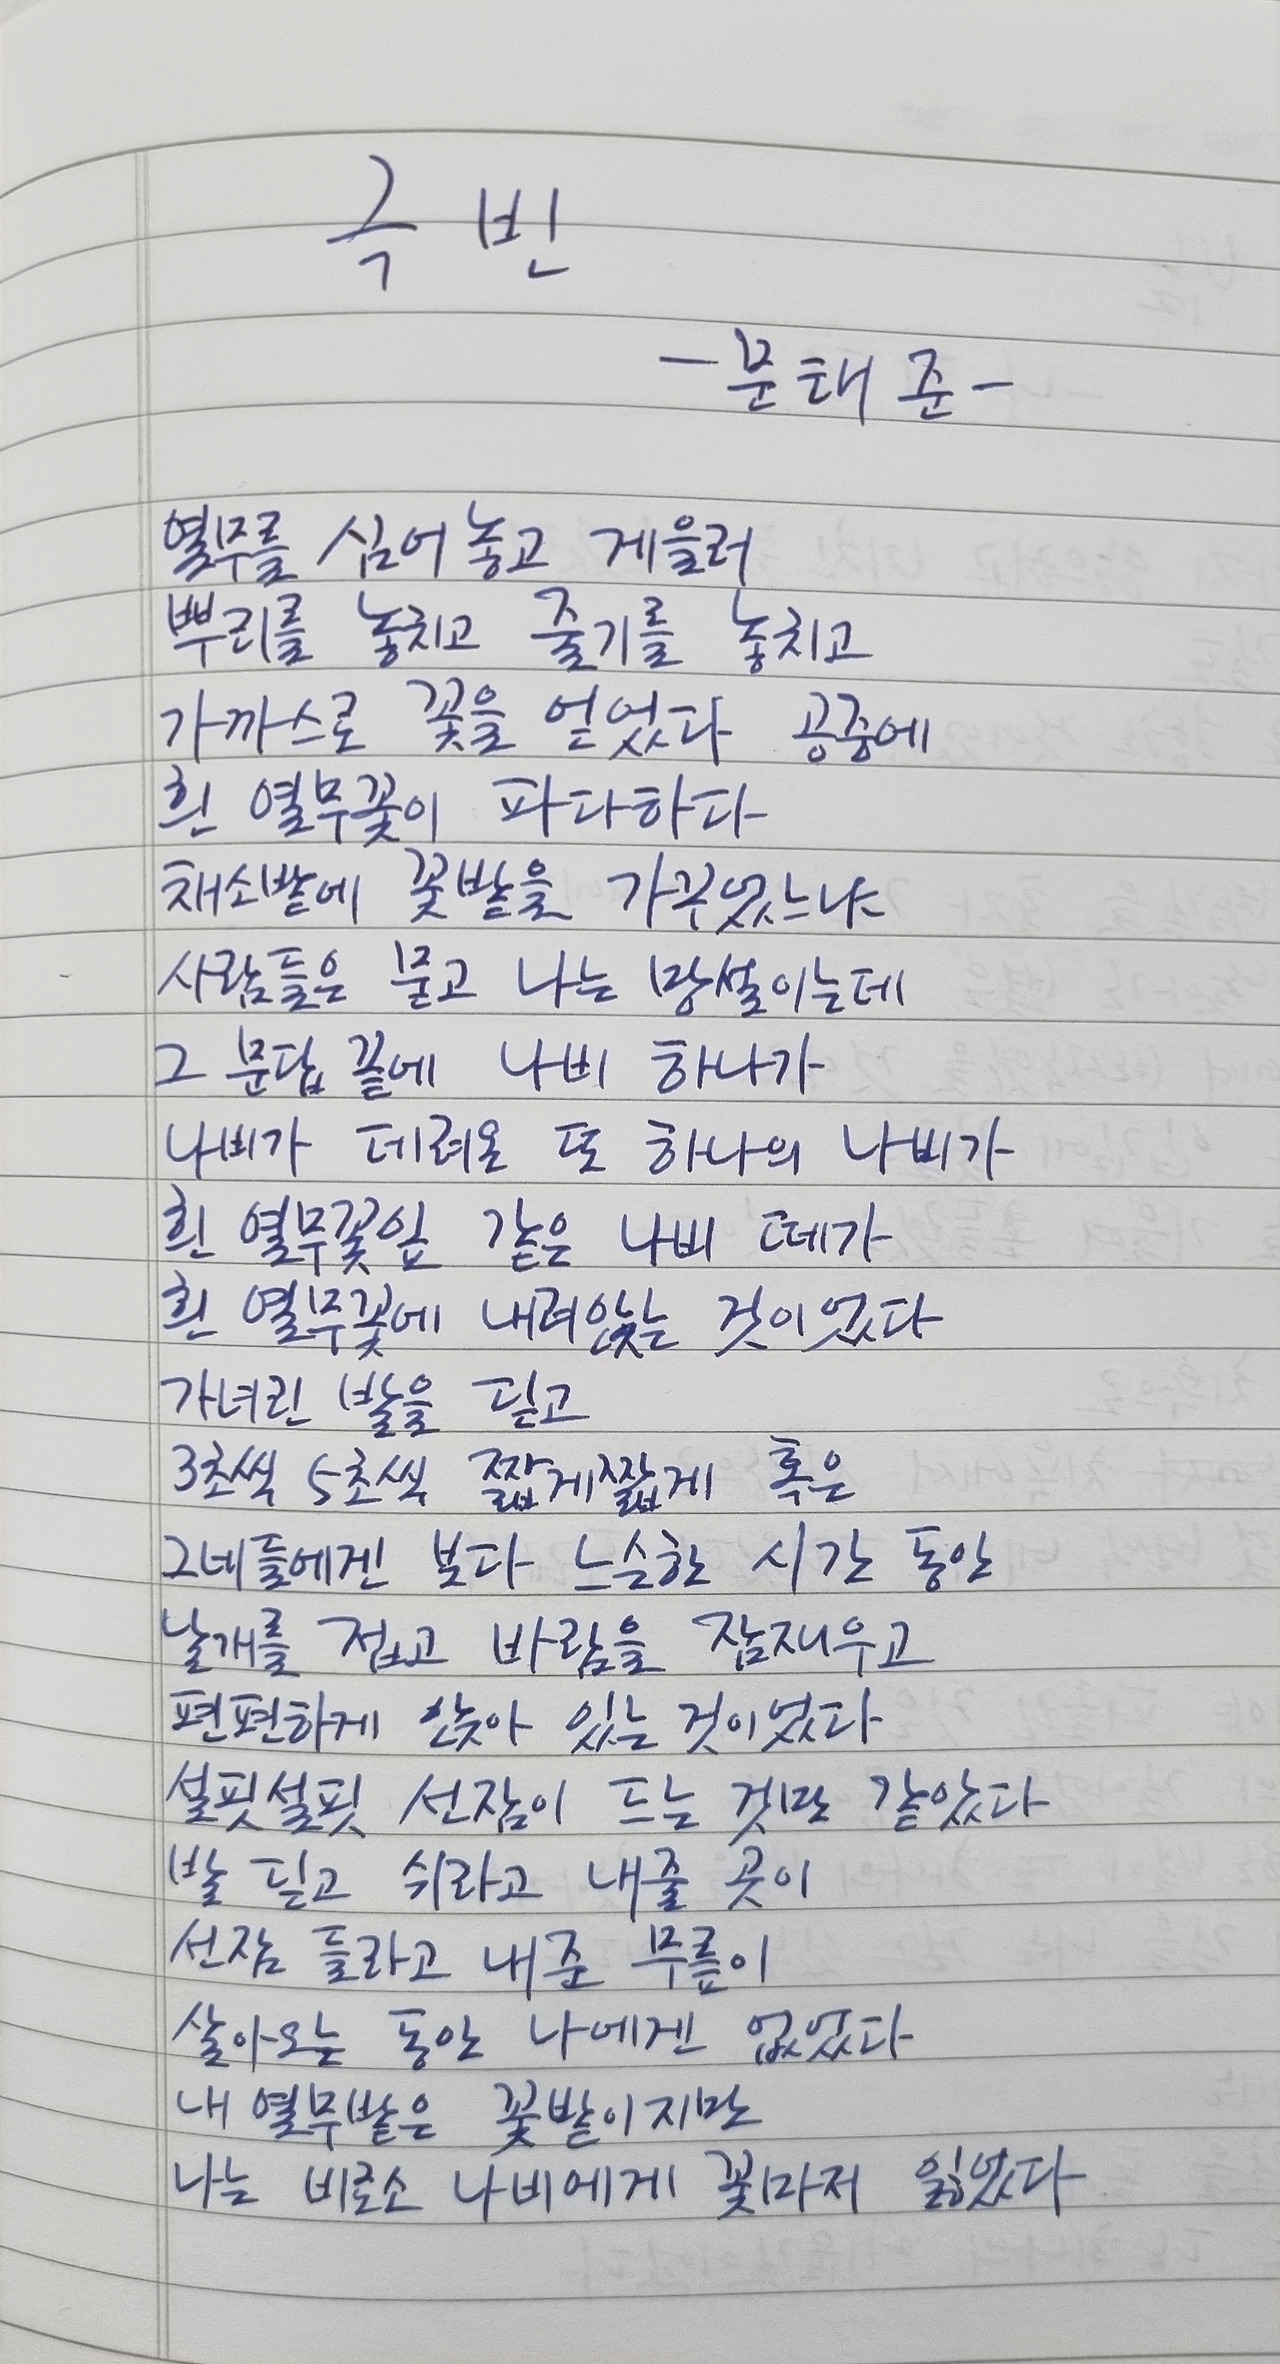 극빈
-문태준-
열무를 심어놓고 게을러
뿌리를 놓치고 줄기를 놓치고
가까스로 꽃을 얻었다 공중에
흰 열무꽃이 파다하다
채소밭에 꽃밭을 가꾸었느냐
사람들은 묻고 나는 망설이는데
그 문답 끝에 나비 하나가
나비가 데려온 또 하나의 나비가
흰 열무꽃잎 같은 나비 떼가
흰 열무꽃에 내려앉는 것이었다
가녀린 발을 딛고
3초씩 5초씩 짧게짧게 혹은
그네들에겐 보다 느슨한 시간 동안
날개를 접고 바람을 잠재우고
편편하게 앉아 있는 것이었다
설핏설핏 선잠이 드는 것만 같았다
발 딛고 쉬라고 내줄 곳이
선잠 들라고 내준 무릎이
살아오는 동안 나에겐 없었다
내 열무밭은 꽃밭이지만
나는 비로소 나비에게 꽃마저 잃었다